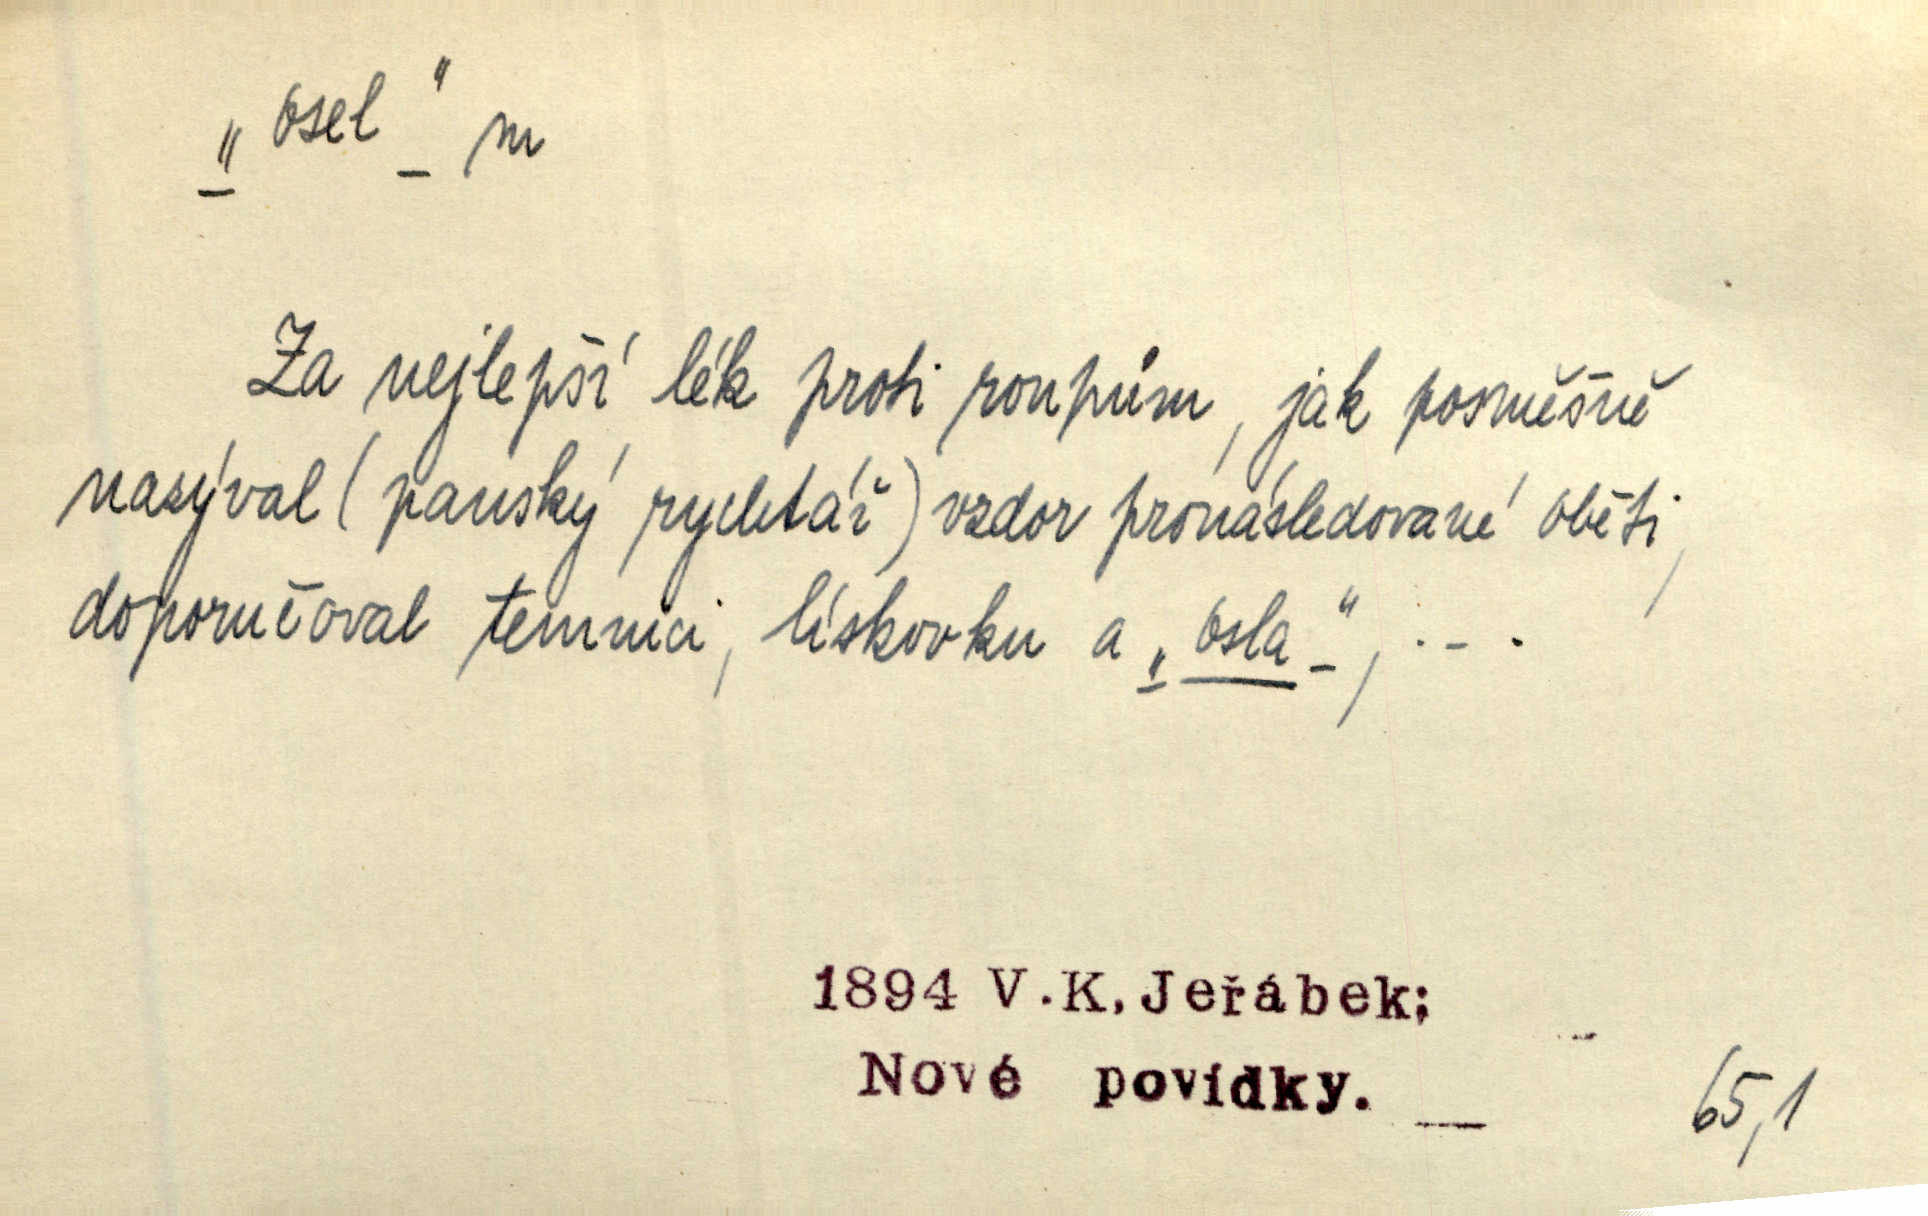 „osel" m
Za nejlepší lék proti roupům, jak posměšně
nazýval (panský rychtář) vzdor pronásledované oběti,
doporučoval temnici, lískovku a „osla", . - .
1894 V.K,Jeřábek;
Nové povídky.
65,1